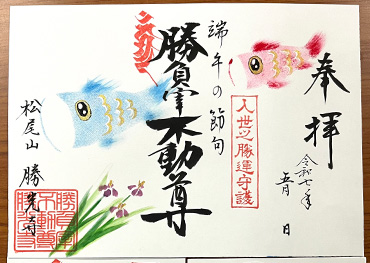 奉拝
令和七年
五月 日
入世之勝運守護
端午の節句
勝負軍不動尊
松尾山 勝光寺